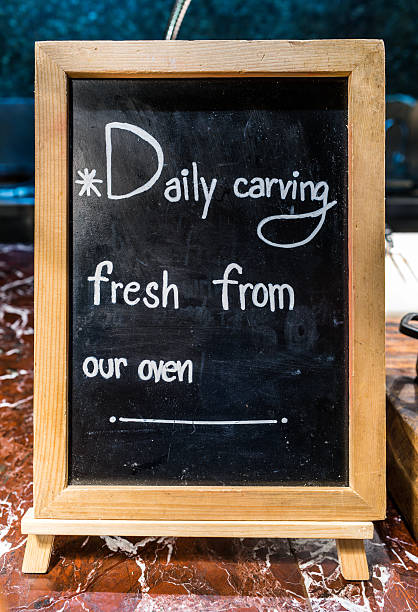 *Daily carving
fresh from
our oven